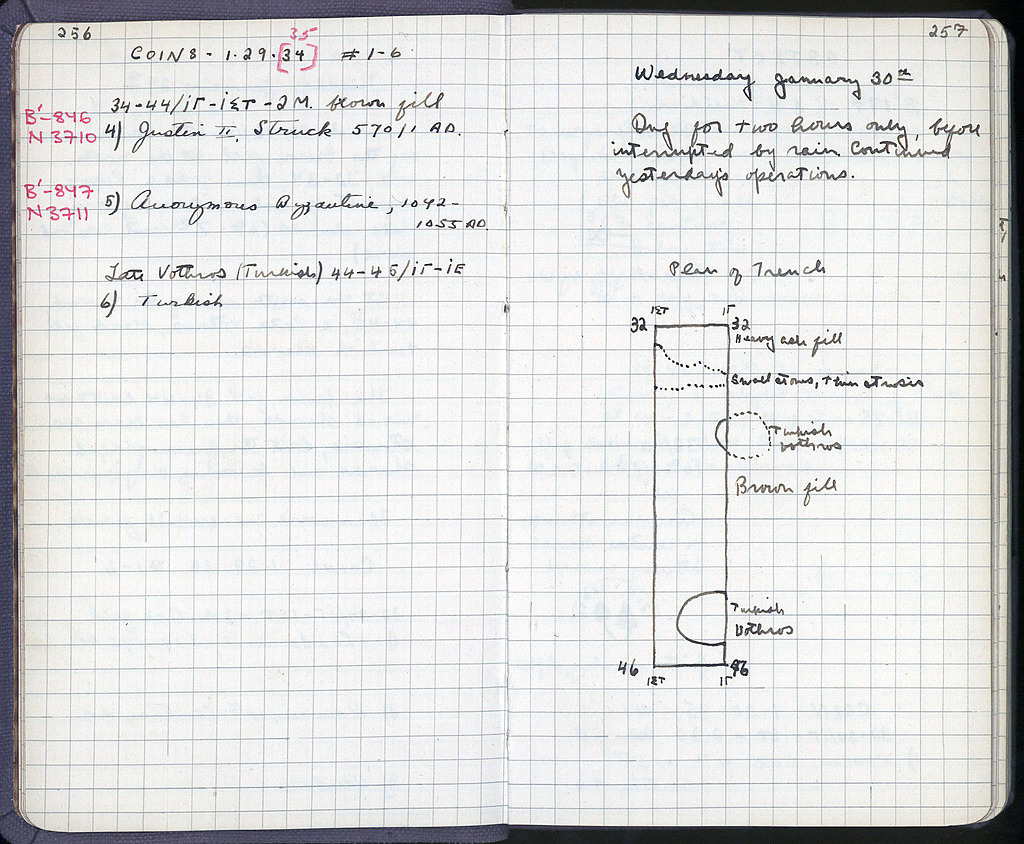 256
35
COINS - 1.29.[34] # 1-6
34-44/ΙΓ-ΙΣΤ - 2 M. brown fill
B'-846
N 3710
4) Justin II. Struck 570/1 AD.
B'-847
N 3711
5) Anonymous Byzantine, 1042-
1055 AD.
Late Vothros (Turkish) 44-45/ΙΓ-ΙΕ
6) Turkish
257
Wednesday January 30th
Dug for two hours only, before
interrupted by rain. Continued
yesterday's operations.
Plan of Trench
ΙΣΤ ΙΓ
32 32
Heavy ash fill
Small stones, thin strosis
Turkish
vothros
Brown fill
Turkish
Vothros
46 46
ΙΣΤ ΙΓ